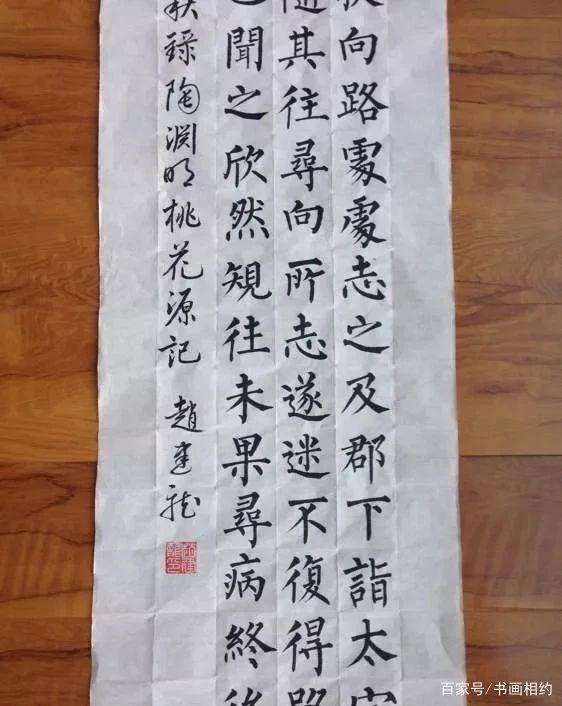 扶向路處處志之及郡下詣太守
隨其往尋向所志遂迷不復得路
也聞之欣然規往未果尋病終後
秋錄陶淵明桃花源記 趙建龍
百家号/书画相约